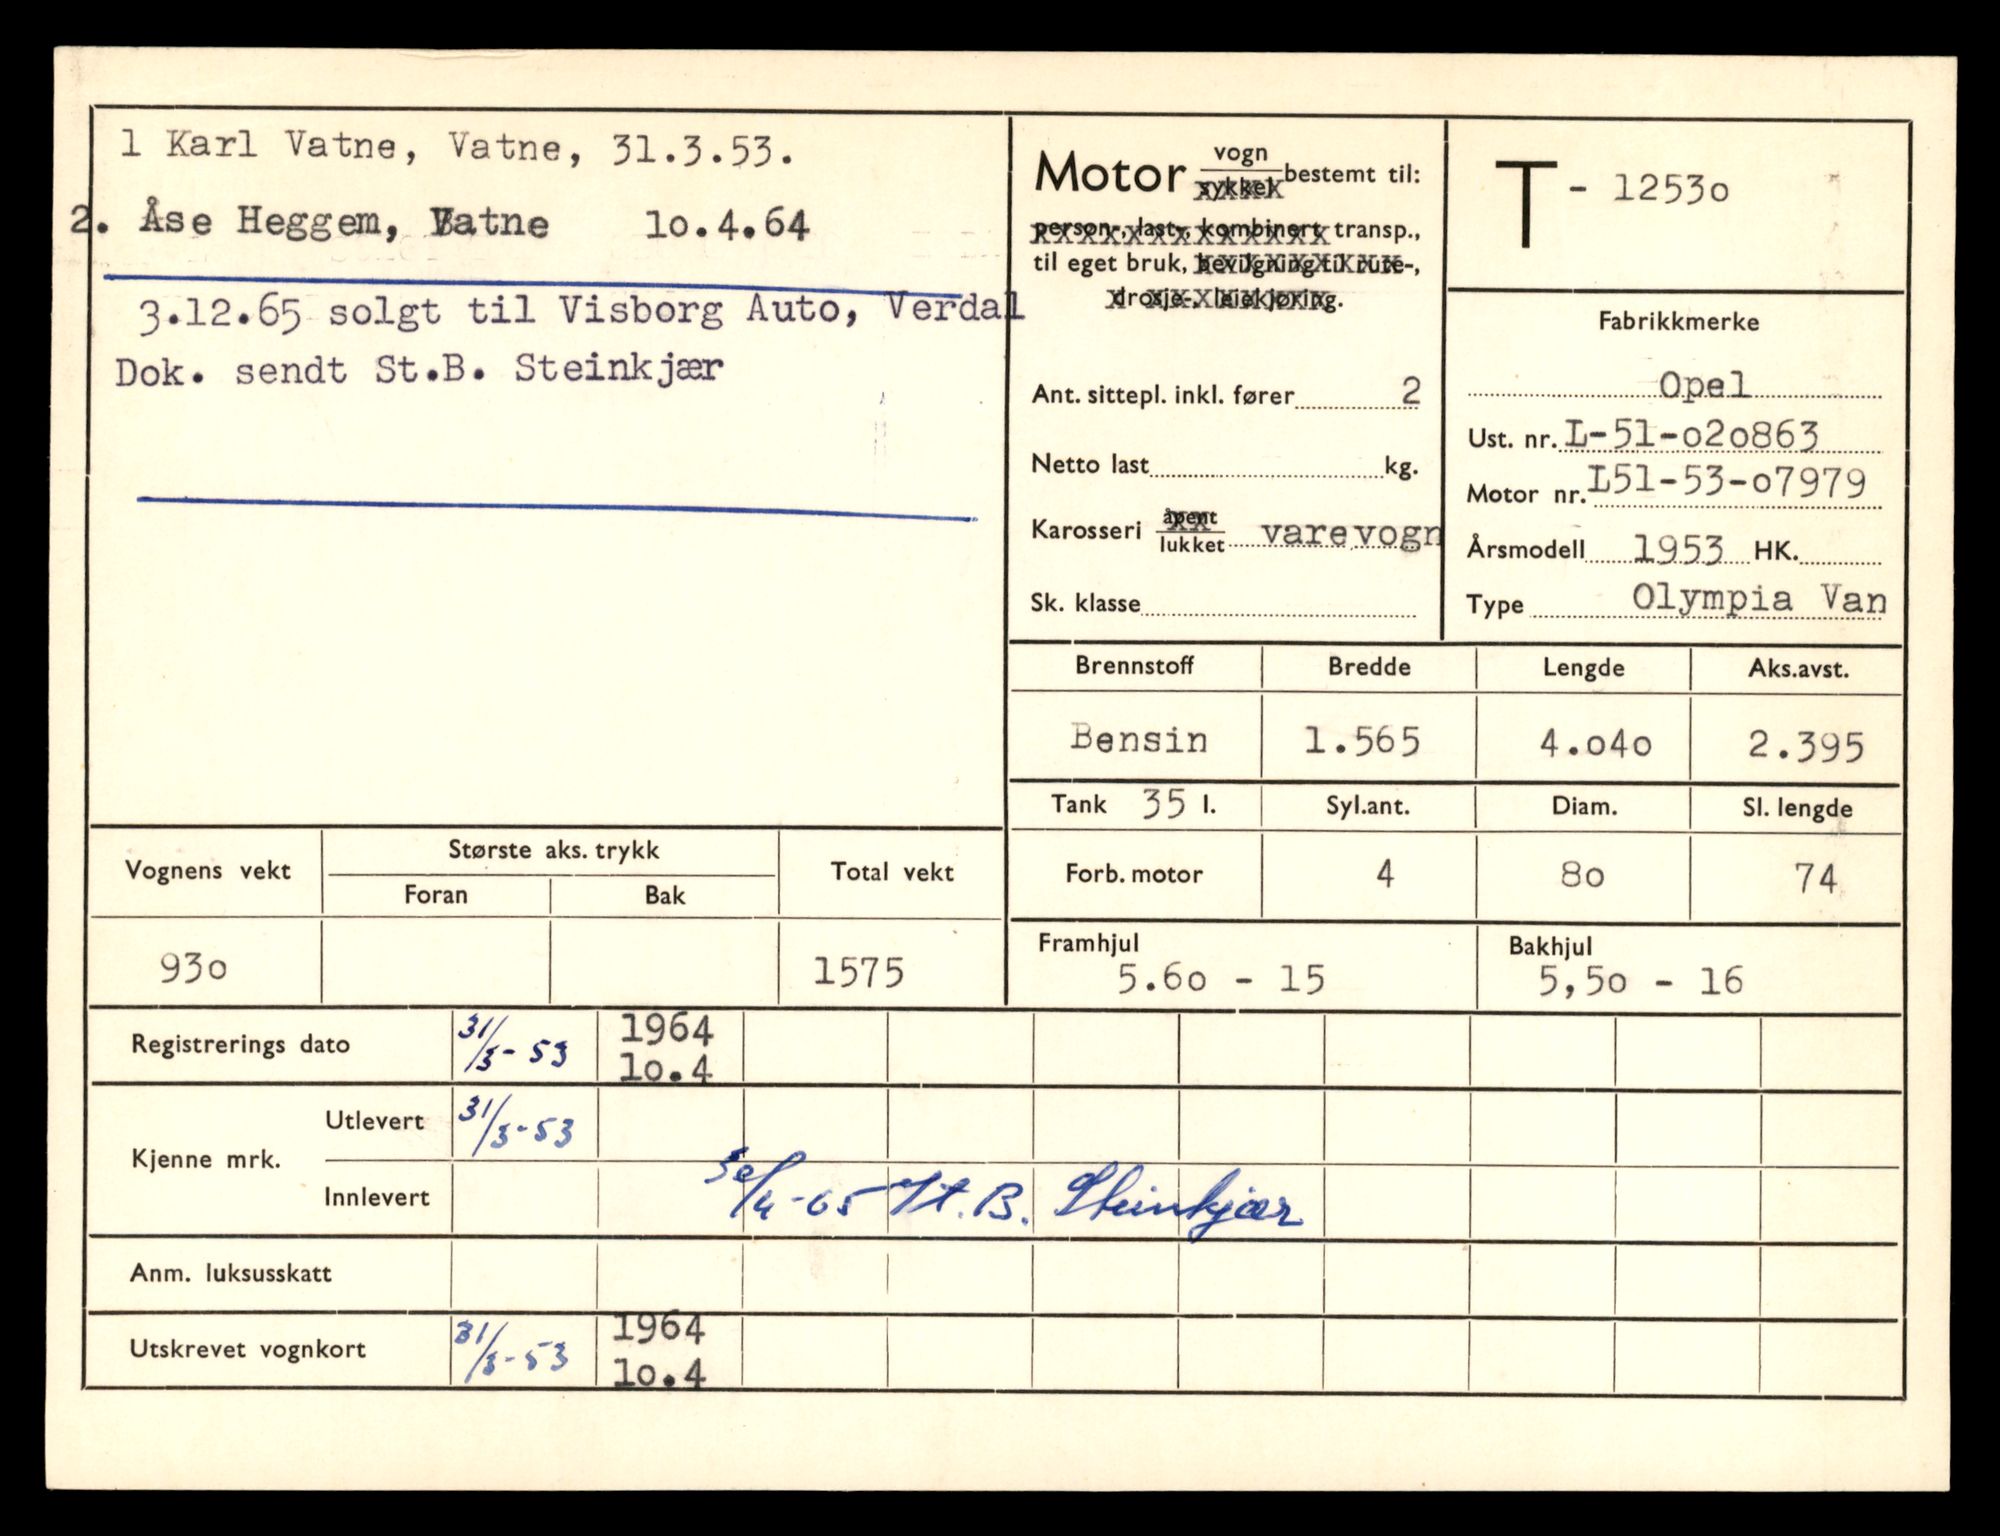 1 Karl Vatne, Vatne, 31.3.53.
2. Åse Heggem, Vatne 1o.4.64
3.12.65 solgt til Visborg Auto, Verdal
Dok. sendt St.B. Steinkjær
Motor vogn bestemt til:
sykkel
person-, last-, kombinert transp.,
til eget bruk, bevilgning til rute-,
drosje-, leiekjøring.
Ant. sittepl. inkl. fører 2
Netto last kg.
Karosseri åpent
lukket varevogn
Sk. klasse
T - 1253o
Fabrikkmerke
Opel
Ust. nr. L-51-o2o863
Motor nr. L51-53-o7979
Årsmodell 1953 HK.
Type Olympia Van
Brennstoff Bredde Lengde Aks.avst.
Bensin 1.565 4.o4o 2.395
Tank 35 l. Syl.ant. Diam. Sl. lengde
Forb. motor 4 8o 74
Framhjul Bakhjul
5.6o - 15 5,5o - 16
Vognens vekt Største aks. trykk Total vekt
Foran Bak
93o 1575
Registrerings dato 31/3-53 1964
1o.4
Kjenne mrk. Utlevert 31/3-53
Innlevert 30/4-65 St. B. Steinkjær
Anm. luksusskatt
Utskrevet vognkort 31/3-53 1964
1o.4